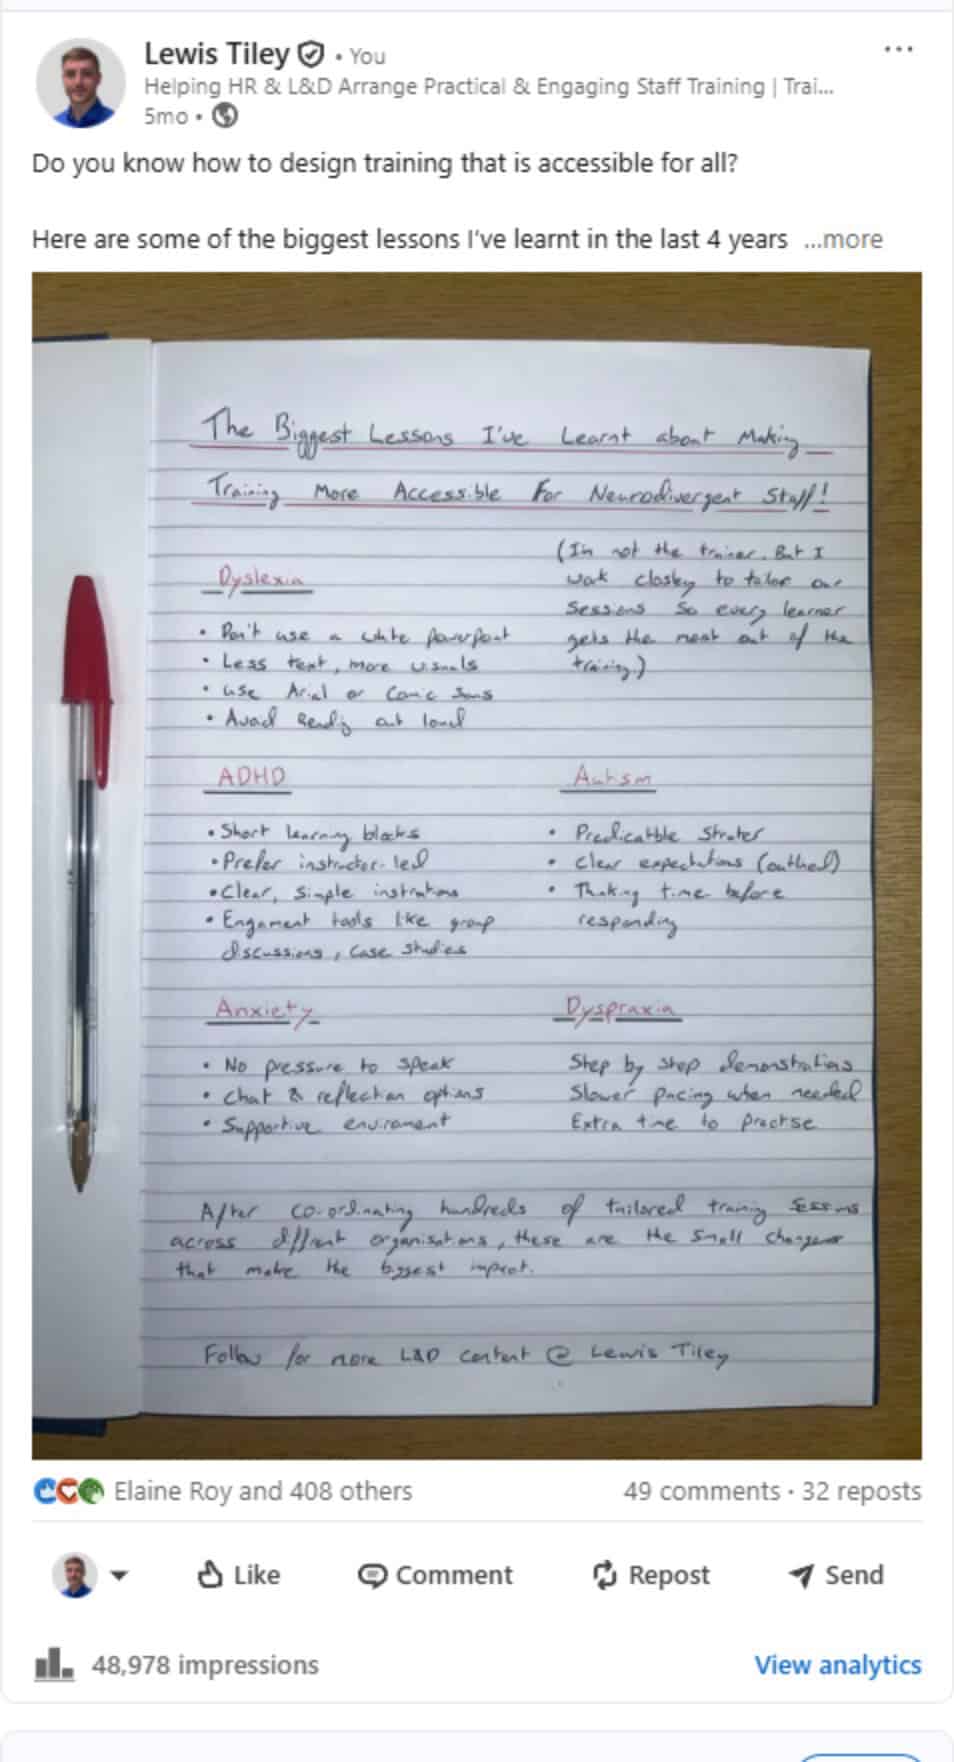 Lewis Tiley • You
Helping HR & L&D Arrange Practical & Engaging Staff Training | Trai...
5mo •
Do you know how to design training that is accessible for all?
Here are some of the biggest lessons I've learnt in the last 4 years ...more
The Biggest Lessons I've Learnt about Making
Training More Accessible For Neurodivergent Staff!
(I'm not the trainer. But I
work closley to tailor our
Sessions So every learner
gets the most out of the
training.)
Dyslexia
• Don't use a white powerpoint
• Less text, more visuals
• Use Arial or Comic Sans
• Avoid Reading out loud
ADHD
• Short learning blocks
• Prefer instructor-led
• Clear, simple instrutions
• Engament tools like group
discussions, case studies
Autism
• Predicatble
• Clear expectations
• Thinking time before
responding
Anxiety
• No pressure to speak
• Chat & reflection options
• Supportive enviroment
Dyspraxia
Step by step demonstrations
Slower pacing when needed
Extra time to practise
After co-ordinating hundreds of tailored training sessions
across diffrent organisations, these are the small changes
that make the biggest impact.
Follow for more L&D content @ Lewis Tiley
Elaine Roy and 408 others
49 comments • 32 reposts
Like
Comment
Repost
Send
48,978 impressions
View analytics